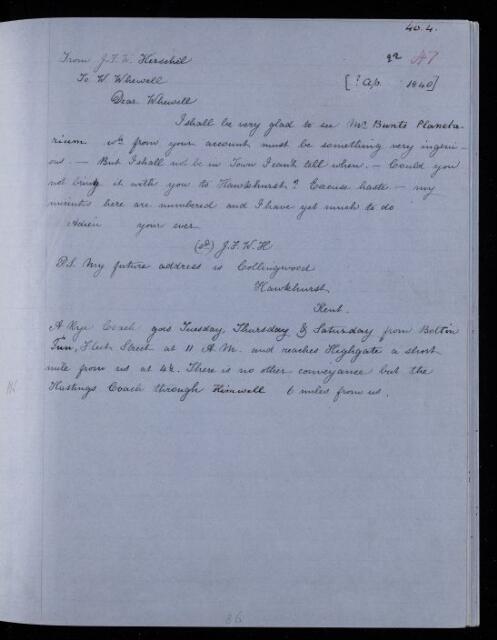 40.4.
From J.F.W. Herschel 22 47
To W. Whewell [? Ap. 1840]
Dear Whewell
I shall be very glad to see Mr. Bunts Planeta-
rium wh from your account must be something very ingeni-
ous. — But I shall not be in Town I can't tell when. — Could you
not bring it with you to Hawkhurst? Excuse haste — my
minutes here are numbered and I have yet much to do
Adieu your ever
(sd) J.F.W.H
P.S. My future address is Collingwood
Hawkhurst
Kent.
A Rye Coach goes Tuesday, Thursday & Saturday from Bolt in
Tun, Fleet Street at 11 A.M. and reaches Highgate a short
mile from us at 4½. There is no other conveyance but the
Hastings Coach through Himwell 6 miles from us.
86